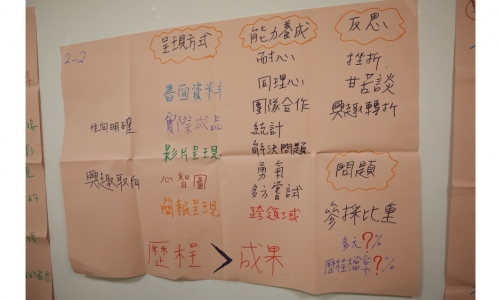 2-2
性向明確
興趣取向
呈現方式
書面資料
實際成品
影片呈現
心智圖
簡報呈現
歷程 > 成果
能力養成
耐心
同理心
團隊合作
統計
解決問題
勇氣
多方嘗試
跨領域
反思
挫折
甘苦談
興趣轉折
問題
參採比重
多元?%
歷程檔案?%